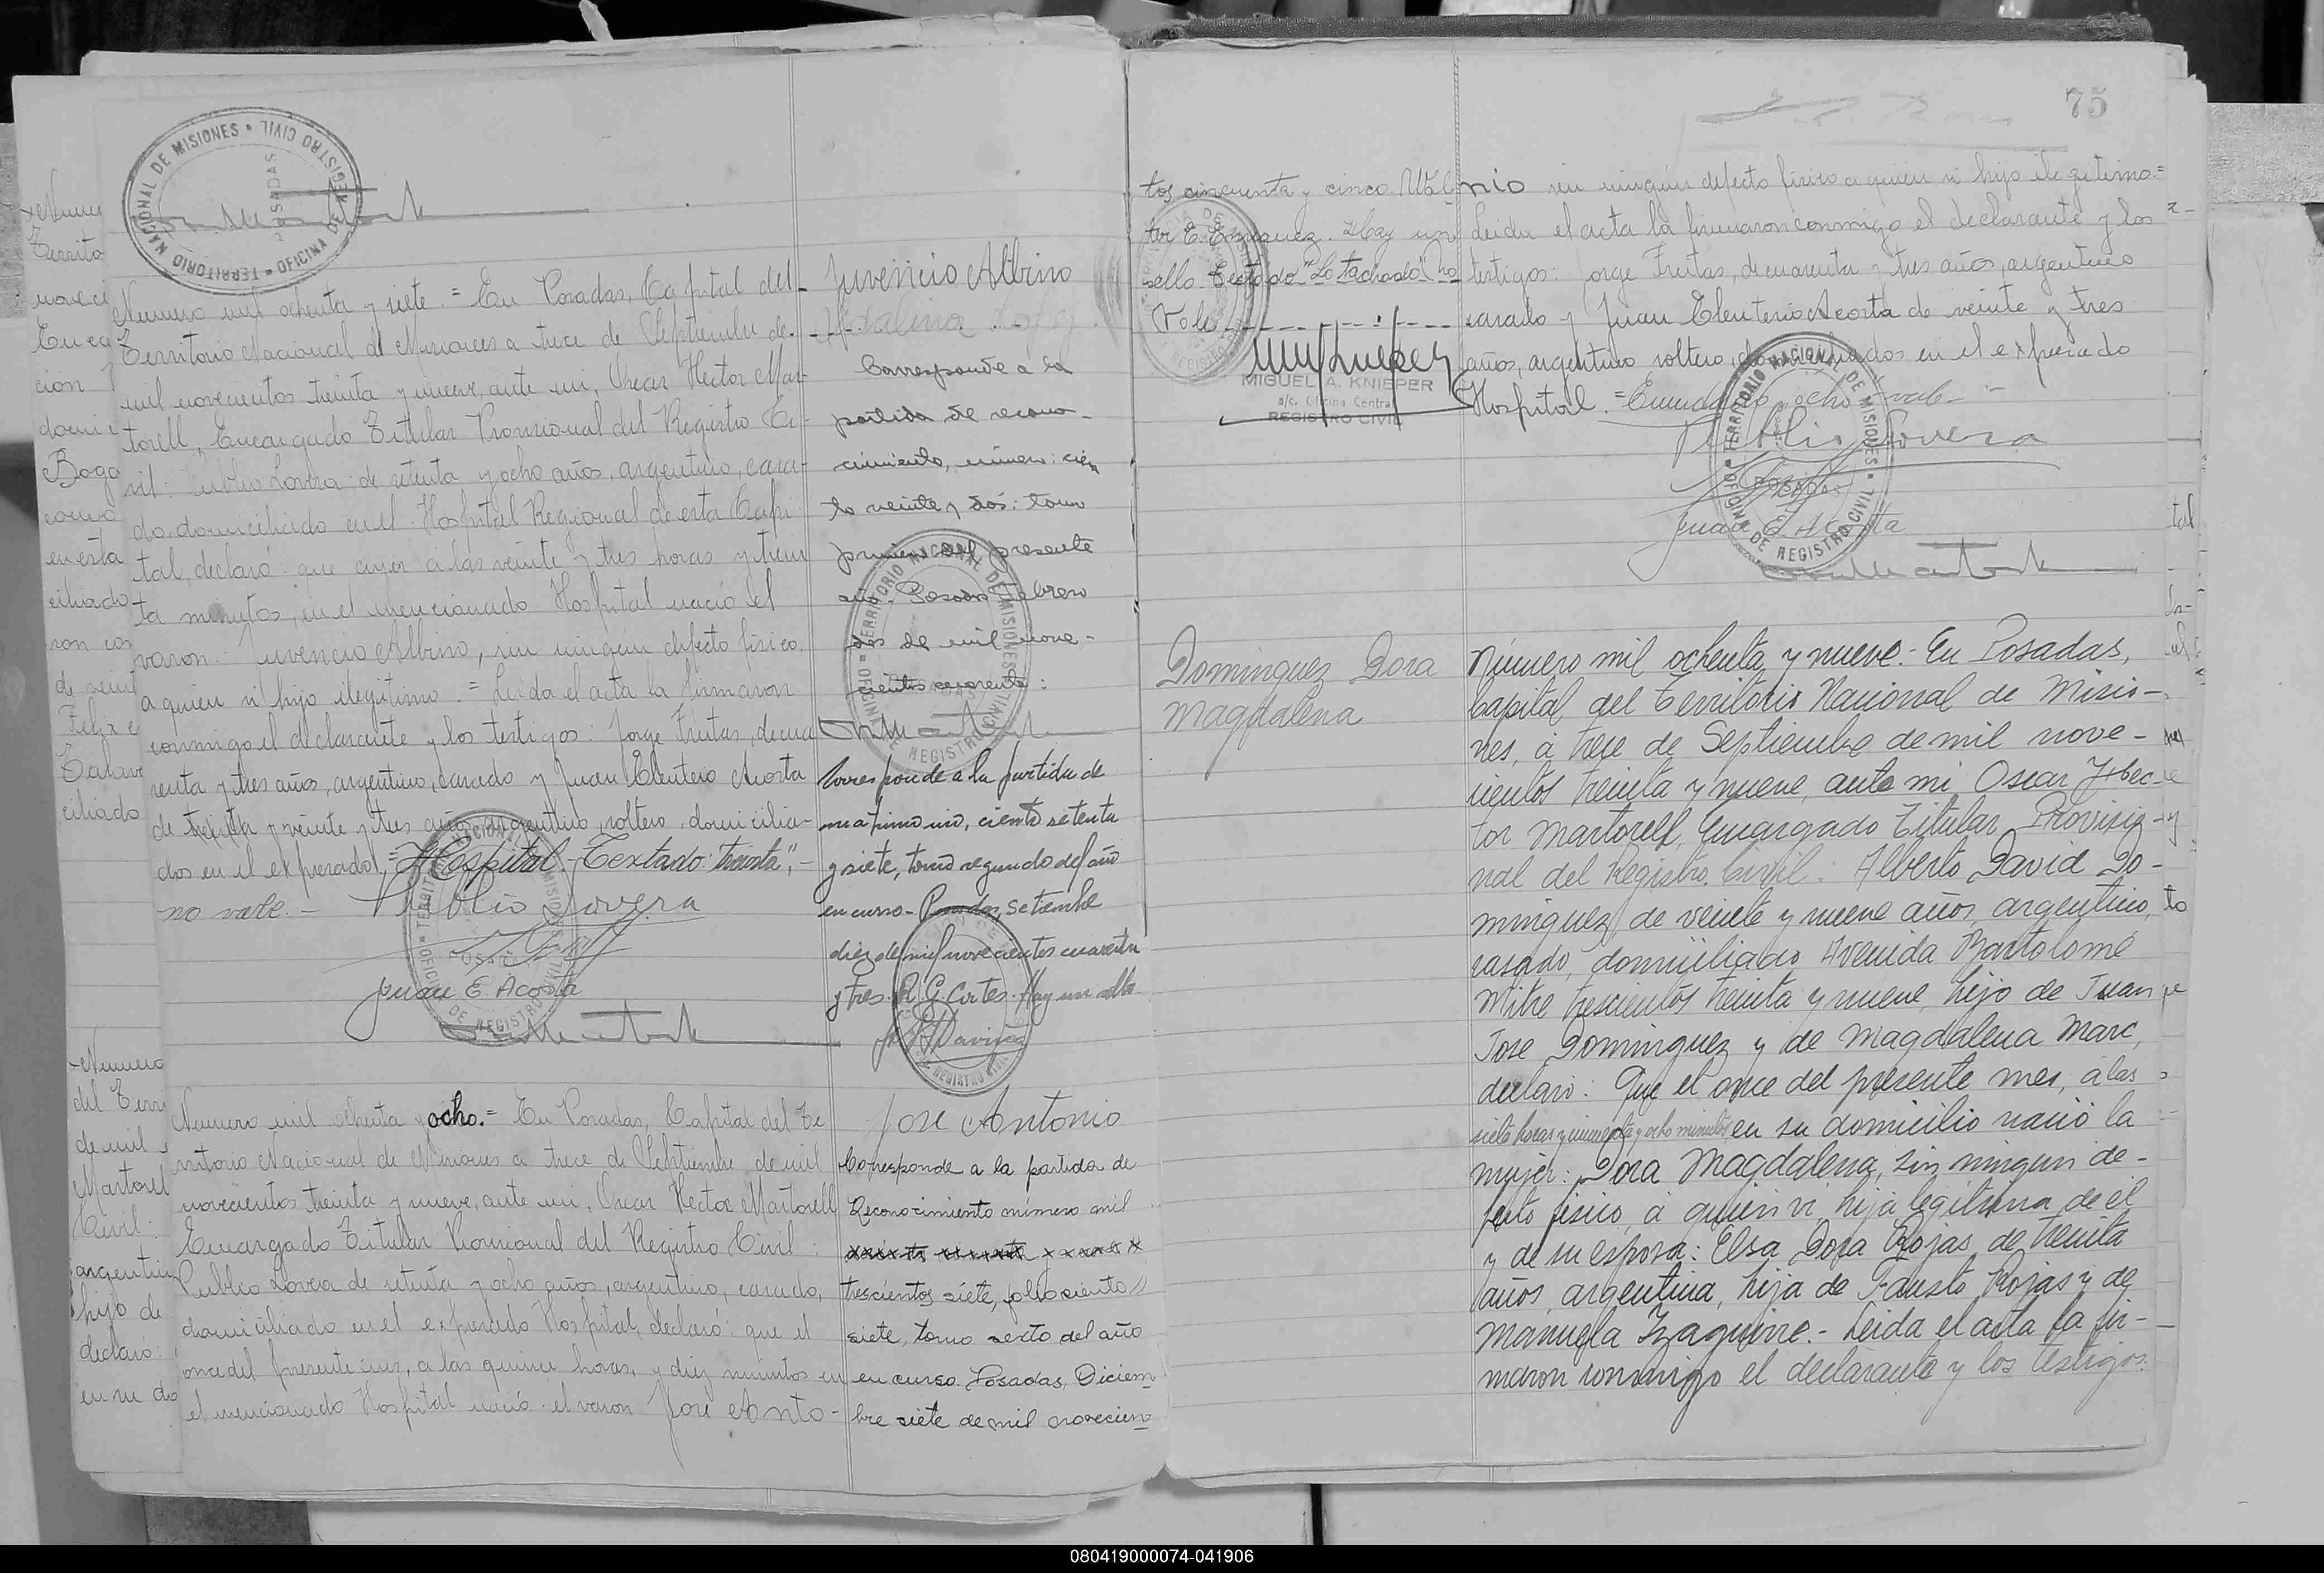 TERRITORIO NACIONAL DE MISIONES • OFICINA DE REGISTRO CIVIL
POSADAS
Numero mil ochenta y siete.= En Posadas, Capital del
Territorio Nacional de Misiones a trece de Septiembre de
mil novecientos treinta y nueve, ante mi, Oscar Hector Mar-
torell, Encargado Titular Provisional del Registro Ci-
vil: Publio Lovera: de setenta y ocho años, argentino, casa-
do, domiciliado en el Hospital Regional de esta Capi-
tal, declaró: que ayer a las veinte y tres horas y trein
ta minutos, en el mencionado Hospital nació el
varon: Juvencio Albino, sin ningun defecto fisico
a quien vi hijo ilegitimo.= Leida el acta la firmaron
conmigo el declarante y los testigos: Jorge Freitas, de cua
renta y tres años, argentino, casado y Juan Eleuterio Acosta
de treinta y veinte y tres años, argentino, soltero domicilia-
dos en el expresado Hospital.- Textado: "treinta",-
no vale.- Publio Lovera
Juan E. Acosta
Juvencio Albino
Corresponde a la
partida de recono-
cimiento, número: cien
to veinte y dós: tomo
primero del presente
año.- Posadas Febrero
dos de mil nove-
cientos cuarenta:
Corresponde a la partida de
matrimonio, ciento setenta
y siete, tomo segundo del año
en curso- Posadas, Setiembre
diez de mil novecientos cuarenta
y tres. R. G. Cortes. Hay un sello
Numero mil ochenta y ocho.= En Posadas, Capital del Te
rritorio Nacional de Misiones a trece de Septiembre de mil
novecientos treinta y nueve, ante mi, Oscar Hector Martorell
Encargado Titular Provisional del Registro Civil:
Publio Lovera de setenta y ocho años, argentino, casado,
domiciliado en el expresado Hospital, declaró: que el
once del presente mes, a las quince horas, y diez minutos en
el mencionado Hospital nació el varon José Anto-
José Antonio
Corresponde a la partida de
Reconocimiento número mil
trescientos siete, folio ciento
siete, tomo sexto del año
en curso. Posadas, Diciem
bre siete de mil novecien
75
tos cincuenta y cinco.
tor E. Enriquez. Hay un
sello Textado "Lo tachado" no
Vale
MIGUEL A. KNIEPER
a/c. Oficina Central
REGISTRO CIVIL
nio sin ningún defecto fisico a quien vi hijo ilegitimo.=
Leida el acta la firmaron conmigo el declarante y los
testigos: Jorge Freitas, de cuarenta y tres años, argentino
casado y Juan Eleuterio Acosta de veinte y tres
años, argentino soltero, domiciliados en el expresado
Hospital.= Enmendado ocho vale-
Publio Lovera
Juan E. Acosta
Dominguez Dora
Magdalena
Número mil ochenta y nueve.- En Posadas,
Capital del Territorio Nacional de Misio-
nes, á trece de Septiembre de mil nove-
cientos treinta y nueve, ante mi, Oscar Hec-
tor Martorell, Encargado Titular Provisio-
nal del Registro Civil: Alberto David Do-
minguez de veinte y nueve años, argentino,
casado, domiciliado Avenida Bartolomé
Mitre trescientos treinta y nueve, hijo de Juan
Jose Dominguez y de Magdalena Marc,
declaró: Que el once del presente mes, á las
siete horas y cincuenta y ocho minutos en su domicilio nació la
mujer: Dora Magdalena, sin ningun de-
fecto fisico, á quien vi, hija legitima de él
y de su esposa: Elsa Dora Rojas, de treinta
años, argentina, hija de Fausto Rojas y de
Manuela Izaguirre.- Leida el acta la fir-
maron conmigo el declarante y los testigos:
080419000074-041906